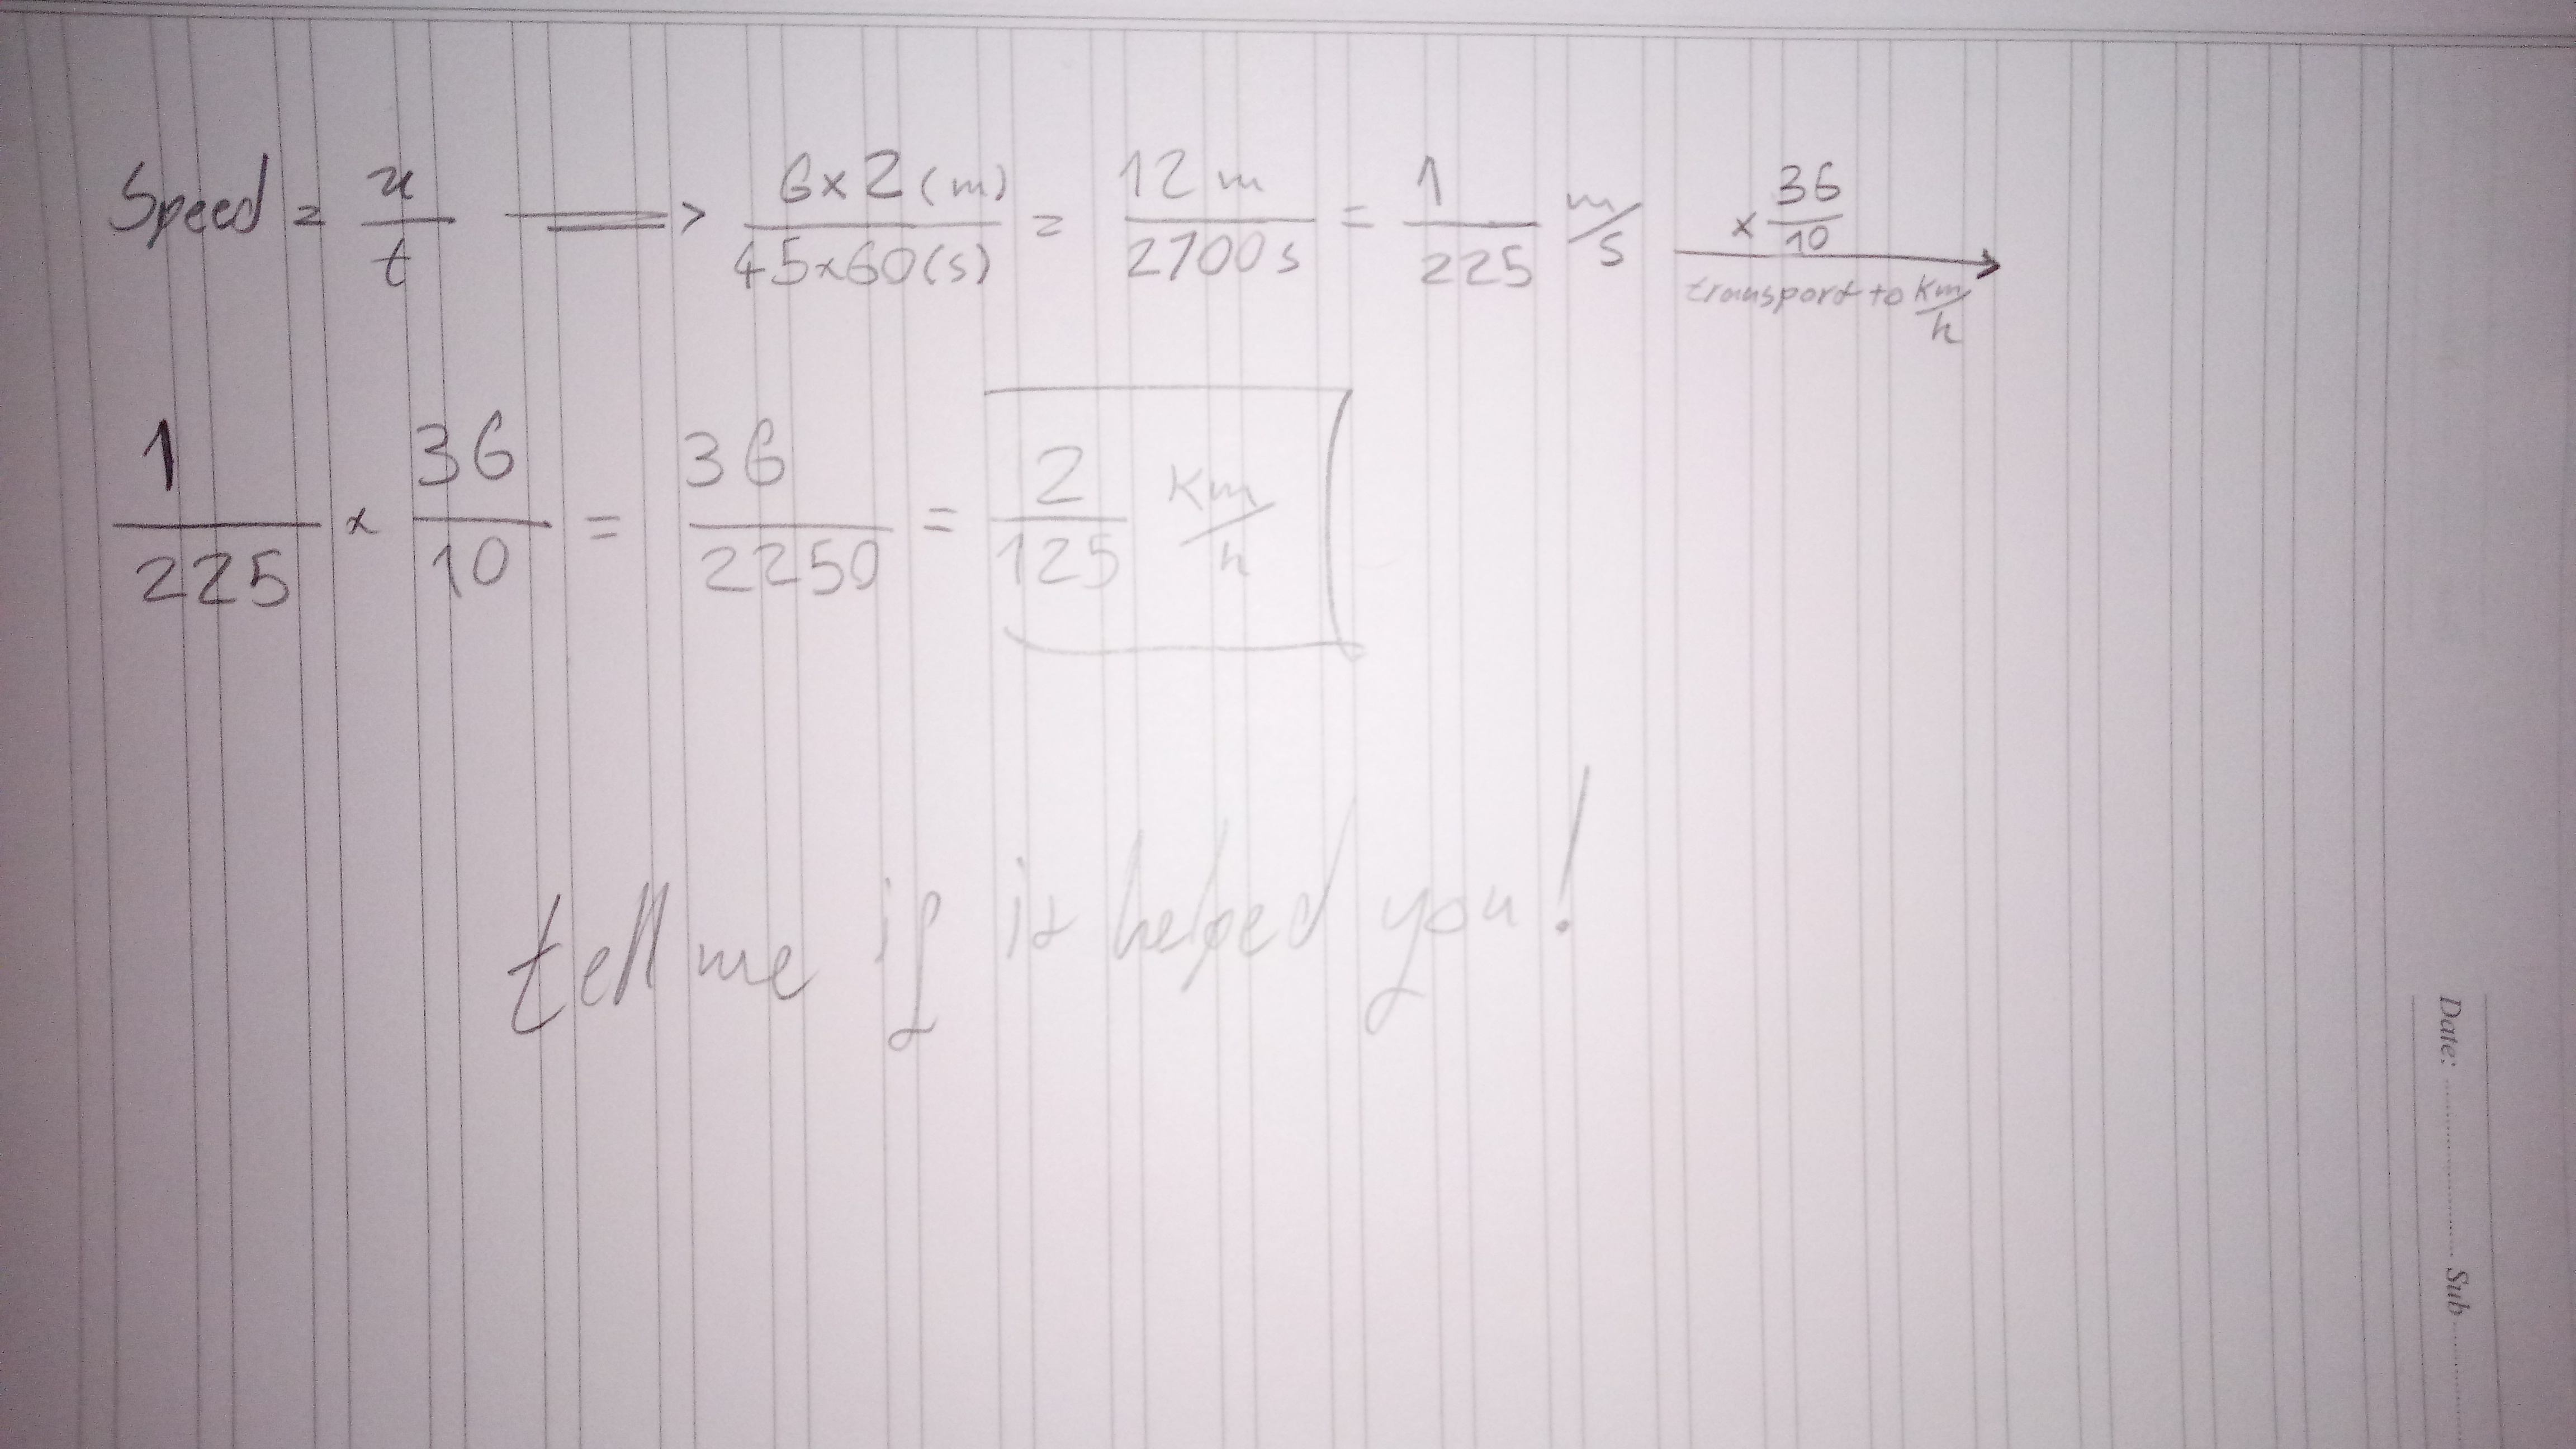 Speed = x/t ⟹ 6×2(m)/45×60(s) = 12m/2700s = 1/225 m/s ×36/10 transport to Km/h →
1/225 × 36/10 = 36/2250 = 2/125 Km/h
tell me if it helped you!
Date: ........................ Sub ............